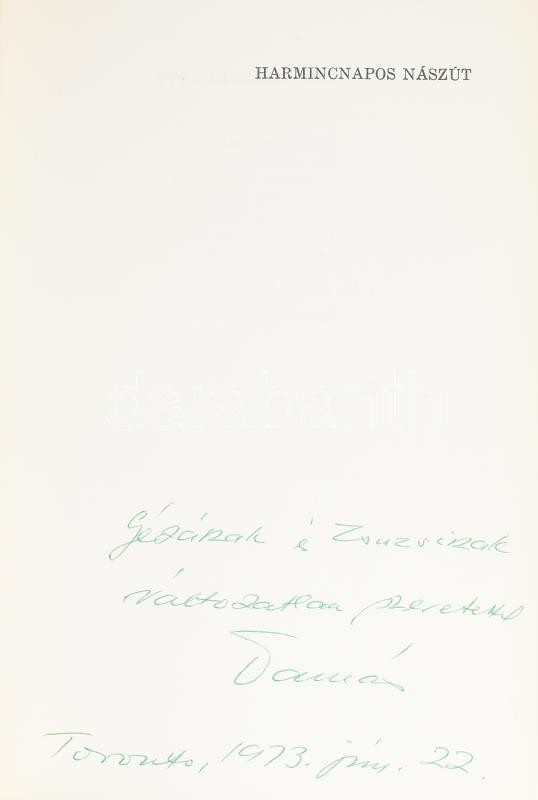 HARMINCNAPOS NÁSZÚT
darabanth
Gézának és Zsuzsinak
változatlan szeretettel
Tamás
Toronto, 1973. jún. 22.